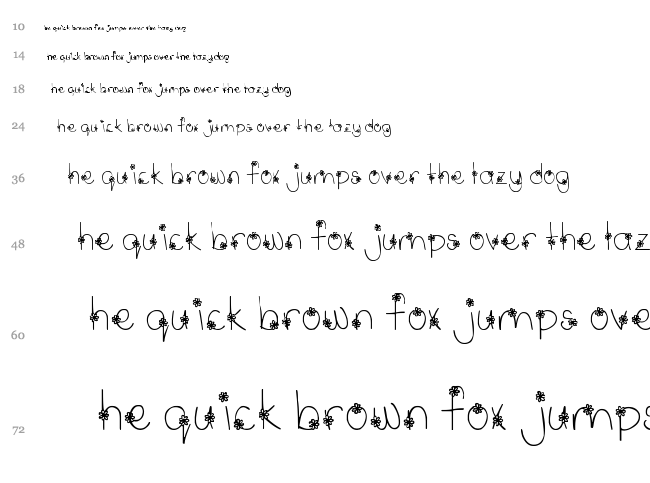 10 he quick brown fox jumps over the lazy dog
14 he quick brown fox jumps over the lazy dog
18 he quick brown fox jumps over the lazy dog
24 he quick brown fox jumps over the lazy dog
36 he quick brown fox jumps over the lazy dog
48 he quick brown fox jumps over the laz
60 he quick brown fox jumps ove
72 he quick brown fox jumps